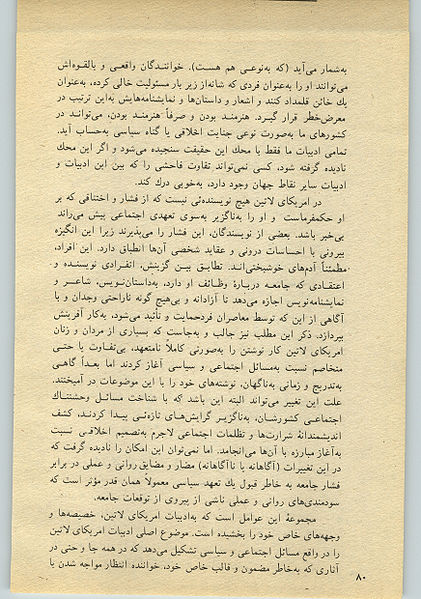 به‌شمار می‌آید (که به‌نوعی هم هست). خوانندگان واقعی و بالقوه‌اش
می‌توانند او را به‌عنوان فردی که شانه‌از زیر بار مسئولیت خالی کرده، به‌عنوان
یك خائن قلمداد کنند و اشعار و داستان‌ها و نمایشنامه‌هایش به‌این ترتیب در
معرض‌خطر قرار گیرد. هنرمند بودن و صرفاً هنرمند بودن، می‌تواند در
کشورهای ما به‌صورت نوعی جنایت اخلاقی یا گناه سیاسی به‌حساب آید.
تمامی ادبیات ما فقط با محك این حقیقت سنجیده می‌شود و اگر این محك
نادیده گرفته شود، کسی نمی‌تواند تفاوت فاحشی را که بین این ادبیات و
ادبیات سایر نقاط جهان وجود دارد، به‌خوبی درك کند.
در امریکای لاتین هیچ نویسنده‌ئی نیست که از فشار و اختناقی که بر
او حکمفرماست و او را به‌ناگزیر به‌سوی تعهدی اجتماعی پیش می‌راند
بی‌خبر باشد. بعضی از نویسندگان، این فشار را می‌پذیرند زیرا این انگیزه
بیرونی با احساسات درونی و عقاید شخصی آن‌ها انطباق دارد. این افراد،
مطمئناً آدم‌های خوشبختی‌اند. تطابق بین گزینش، انفرادی نویسنده و
اعتقادی که جامعه دربارهٔ وظائف او دارد، به‌داستان‌نویس، شاعر و
نمایشنامه‌نویس اجازه می‌دهد تا آزادانه و بی‌هیچ گونه ناراحتی وجدان و با
آگاهی از این که توسط معاصران فردحمایت و تأئید می‌شود، به‌کار آفرینش
بپردازد. ذکر این مطلب نیز جالب و به‌جاست که بسیاری از مردان و زنان
امریکای لاتین کار نوشتن را به‌صورتی کاملاً نامتعهد، بی‌تفاوت یا حتی
متخاصم نسبت به‌مسائل اجتماعی و سیاسی آغاز کردند اما بعداً گاهی
به‌تدریج و زمانی به‌ناگهان، نوشته‌های خود را با این موضوعات در آمیختند.
علت این تغییر می‌تواند البته این باشد که با شناخت مسائل وحشتناك
اجتماعی کشورشان، به‌ناگزیر گرایش‌های تازه‌ئی پیدا کردند، کشف
اندیشمندانهٔ شرارت‌ها و تظلمات اجتماعی لاجرم به‌تصمیم اخلاقی نسبت
به‌آغاز مبارزه با آن‌ها می‌انجامد. اما نمی‌توان این امکان را نادیده گرفت که
در این تغییرات (آگاهانه یا ناآگاهانه) مضار و مضایق روانی و عملی در برابر
فشار جامعه به خاطر قبول یك تعهد سیاسی معمولا همان قدر مؤثر است که
سودمندی‌های روانی و عملی ناشی از پیروی از توقعات جامعه.
مجموعهٔ این عوامل است که به‌ادبیات امریکای لاتین، خصیصه‌ها و
وجهه‌های خاص خود را بخشیده است. موضوع اصلی ادبیات امریکای لاتین
را در واقع مسائل اجتماعی و سیاسی تشکیل می‌دهد که در همه جا و حتی در
آثاری که به‌خاطر مضمون و قالب خاص خود، خواننده انتظار مواجه شدن یا
۸۰